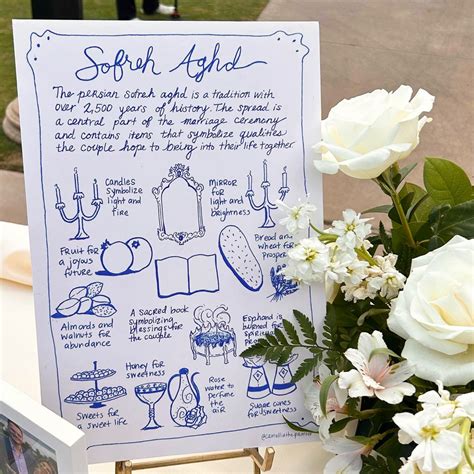 Sofreh Aghd
The persian sofreh aghd is a tradition with
over 2,500 years of history. The spread is
a central part of the marriage ceremony
and contains items that symbolize qualities
the couple hope to being into their life together
Candles
symbolize
light and
fire
Mirror
for
light and
brightness
Fruit for
a joyous
future
Bread and
wheat for
prosper
Almonds and
walnuts for
abundance
A sacred book
symbolizing
blessings for
the couple
Esphand is
burned for
spiritual
pro
Honey for
sweetness
Rose
water to
perfume
the
air
Sweets for
a sweet life
Sugar canes
for sweetness